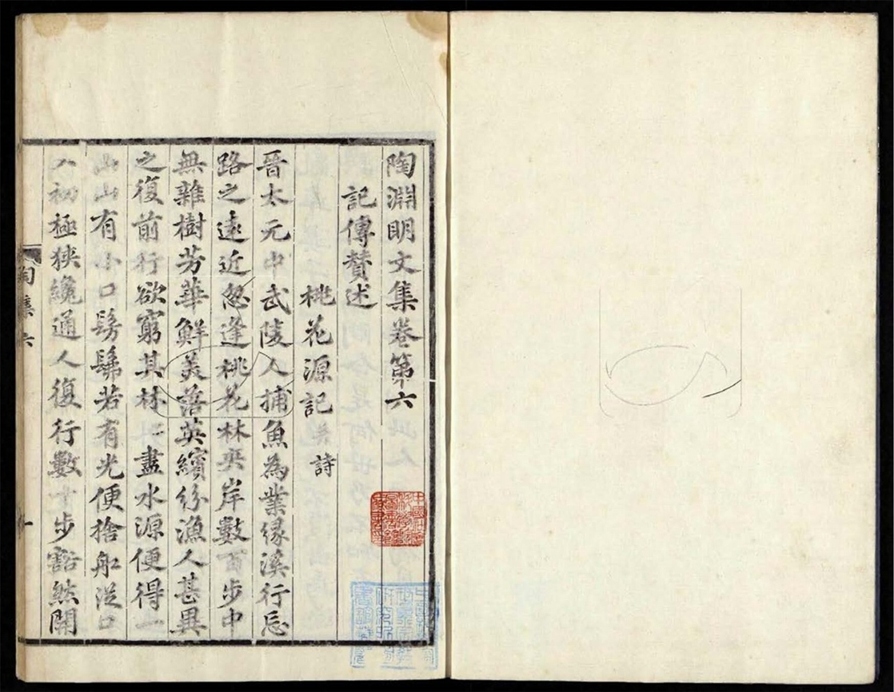 陶淵明文集卷第六
記傳贊述
桃花源記并詩
晉太元中武陵人捕魚為業緣溪行忘
路之遠近忽逢桃花林夾岸數百步中
無雜樹芳華鮮美落英繽紛漁人甚異
之復前行欲窮其林林盡水源便得一
山山有小口髣髴若有光便捨船從口
入初極狹纔通人復行數十步豁然開
陶集六